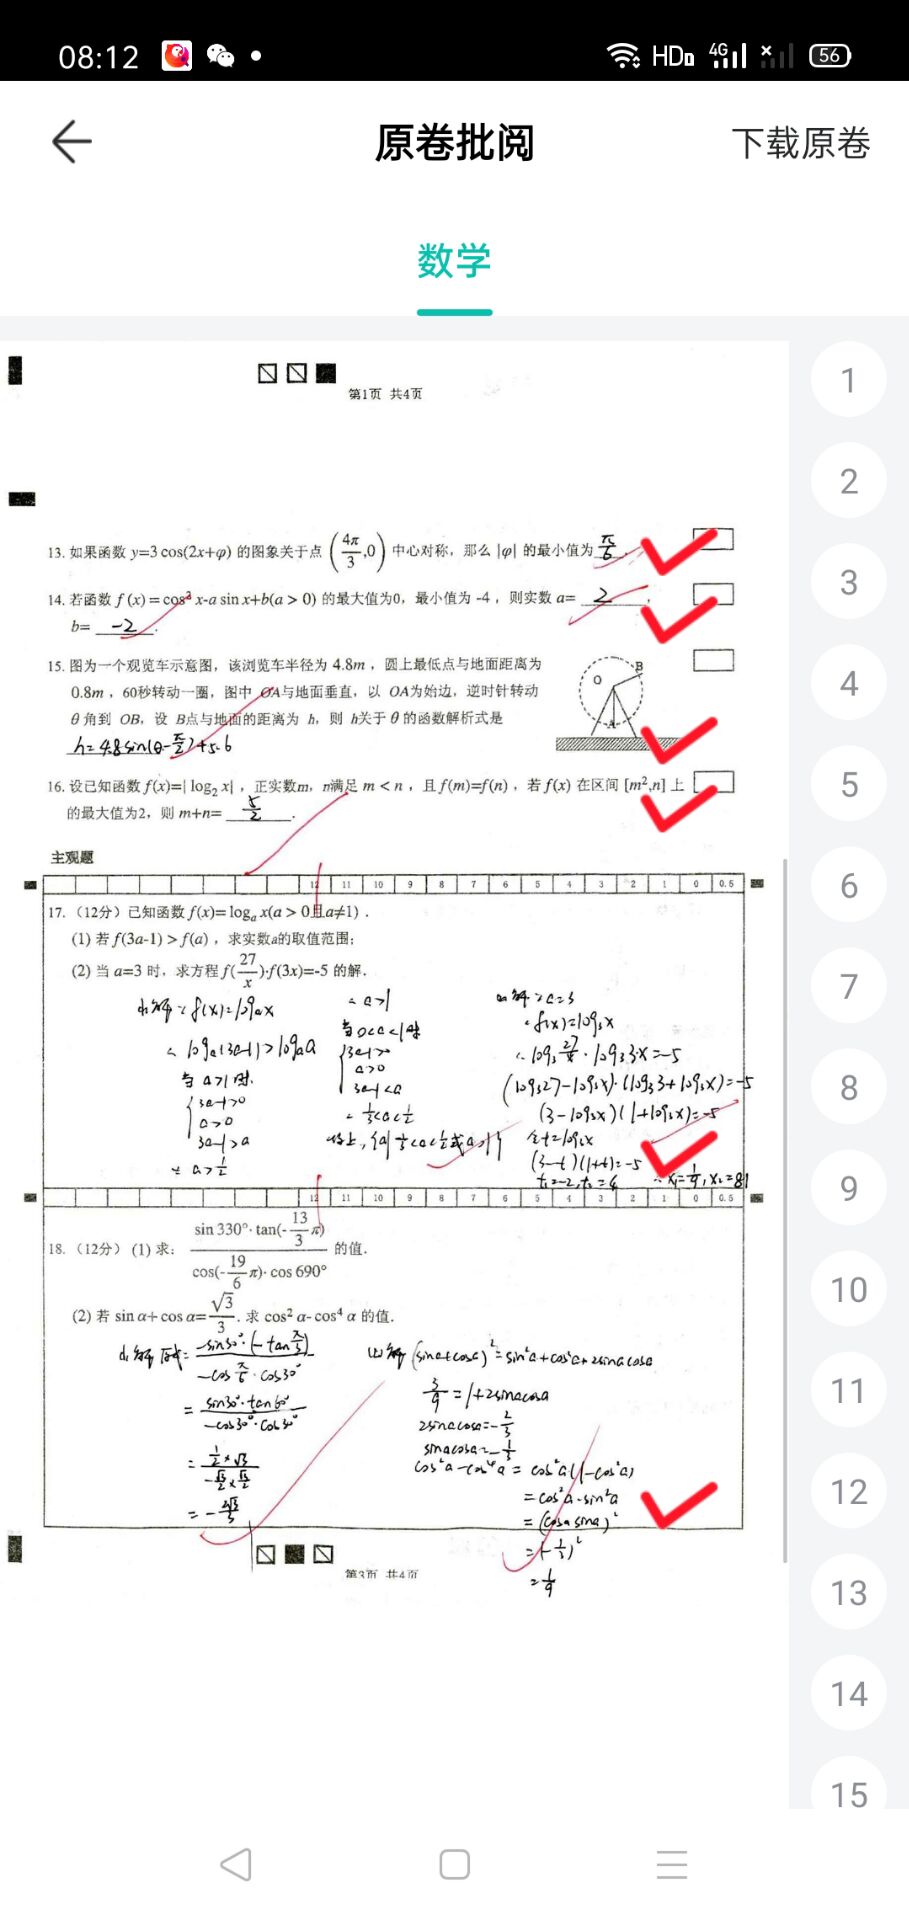 08:12
HD 4G 56
原卷批阅
下载原卷
数学
第1页 共4页
13. 如果函数 y=3 cos(2x+φ) 的图象关于点 (4π/3,0) 中心对称，那么 |φ| 的最小值为 π/6 .
14. 若函数 f (x) = cos² x-a sin x+b(a > 0) 的最大值为0，最小值为 -4，则实数 a= 2 ,
b= -2 .
15. 图为一个观览车示意图，该浏览车半径为 4.8m，圆上最低点与地面距离为
0.8m，60秒转动一圈，图中 OA与地面垂直，以 OA为始边，逆时针转动
θ 角到 OB，设 B点与地面的距离为 h，则 h关于 θ 的函数解析式是
h=4.8sin(θ-π/2)+5.6
O B A
16. 设已知函数 f(x)=| log₂ x|，正实数m，n满足 m < n，且 f(m)=f(n)，若 f(x) 在区间 [m²,n] 上
的最大值为2，则 m+n= 5/2 .
主观题
12 11 10 9 8 7 6 5 4 3 2 1 0 0.5
17. （12分）已知函数 f(x)= logₐ x(a > 0且a≠1) .
(1) 若 f(3a-1) > f(a)，求实数a的取值范围；
(2) 当 a=3 时，求方程 f(27/x)·f(3x)=-5 的解.
解∵f(x)=logₐx
∴logₐ(3a-1)>logₐa
当a>1时.
3a-1>0
a>0
3a-1>a
∴a>1/2
∴a>1
当0<a<1时
3a-1>0
a>0
3a-1<a
∴1/3<a<1/2
综上,{a|1/3<a<1/2或a>1}
解∵a=3
∴f(x)=log₃x
∴log₃27/x·log₃3x=-5
(log₃27-log₃x)·(log₃3+log₃x)=-5
(3-log₃x)(1+log₃x)=-5
令t=log₃x
(3-t)(1+t)=-5
t₁=-2,t₂=4
∴x₁=1/9,x₂=81
12 11 10 9 8 7 6 5 4 3 2 1 0 0.5
18. （12分）(1) 求： sin 330°·tan(-13/3 π) / cos(-19/6 π)·cos 690° 的值.
(2) 若 sin α+ cos α= √3/3 . 求 cos² α- cos⁴ α 的值.
解 原式= -sin30°·(-tanπ/3) / -cosπ/6·cos30°
= sin30°·tan60° / -cos30°·cos30°
= 1/2×√3 / -√3/2×√3/2
= -2√3/3
解 (sina+cosa)²=sin²a+cos²a+2sinacosa
3/9=1+2sinacosa
2sinacosa=-2/3
sinacosa=-1/3
cos²a-cos⁴a=cos²a(1-cos²a)
=cos²a·sin²a
=(cosasina)²
=(-1/3)²
=1/9
第3页 共4页
1
2
3
4
5
6
7
8
9
10
11
12
13
14
15